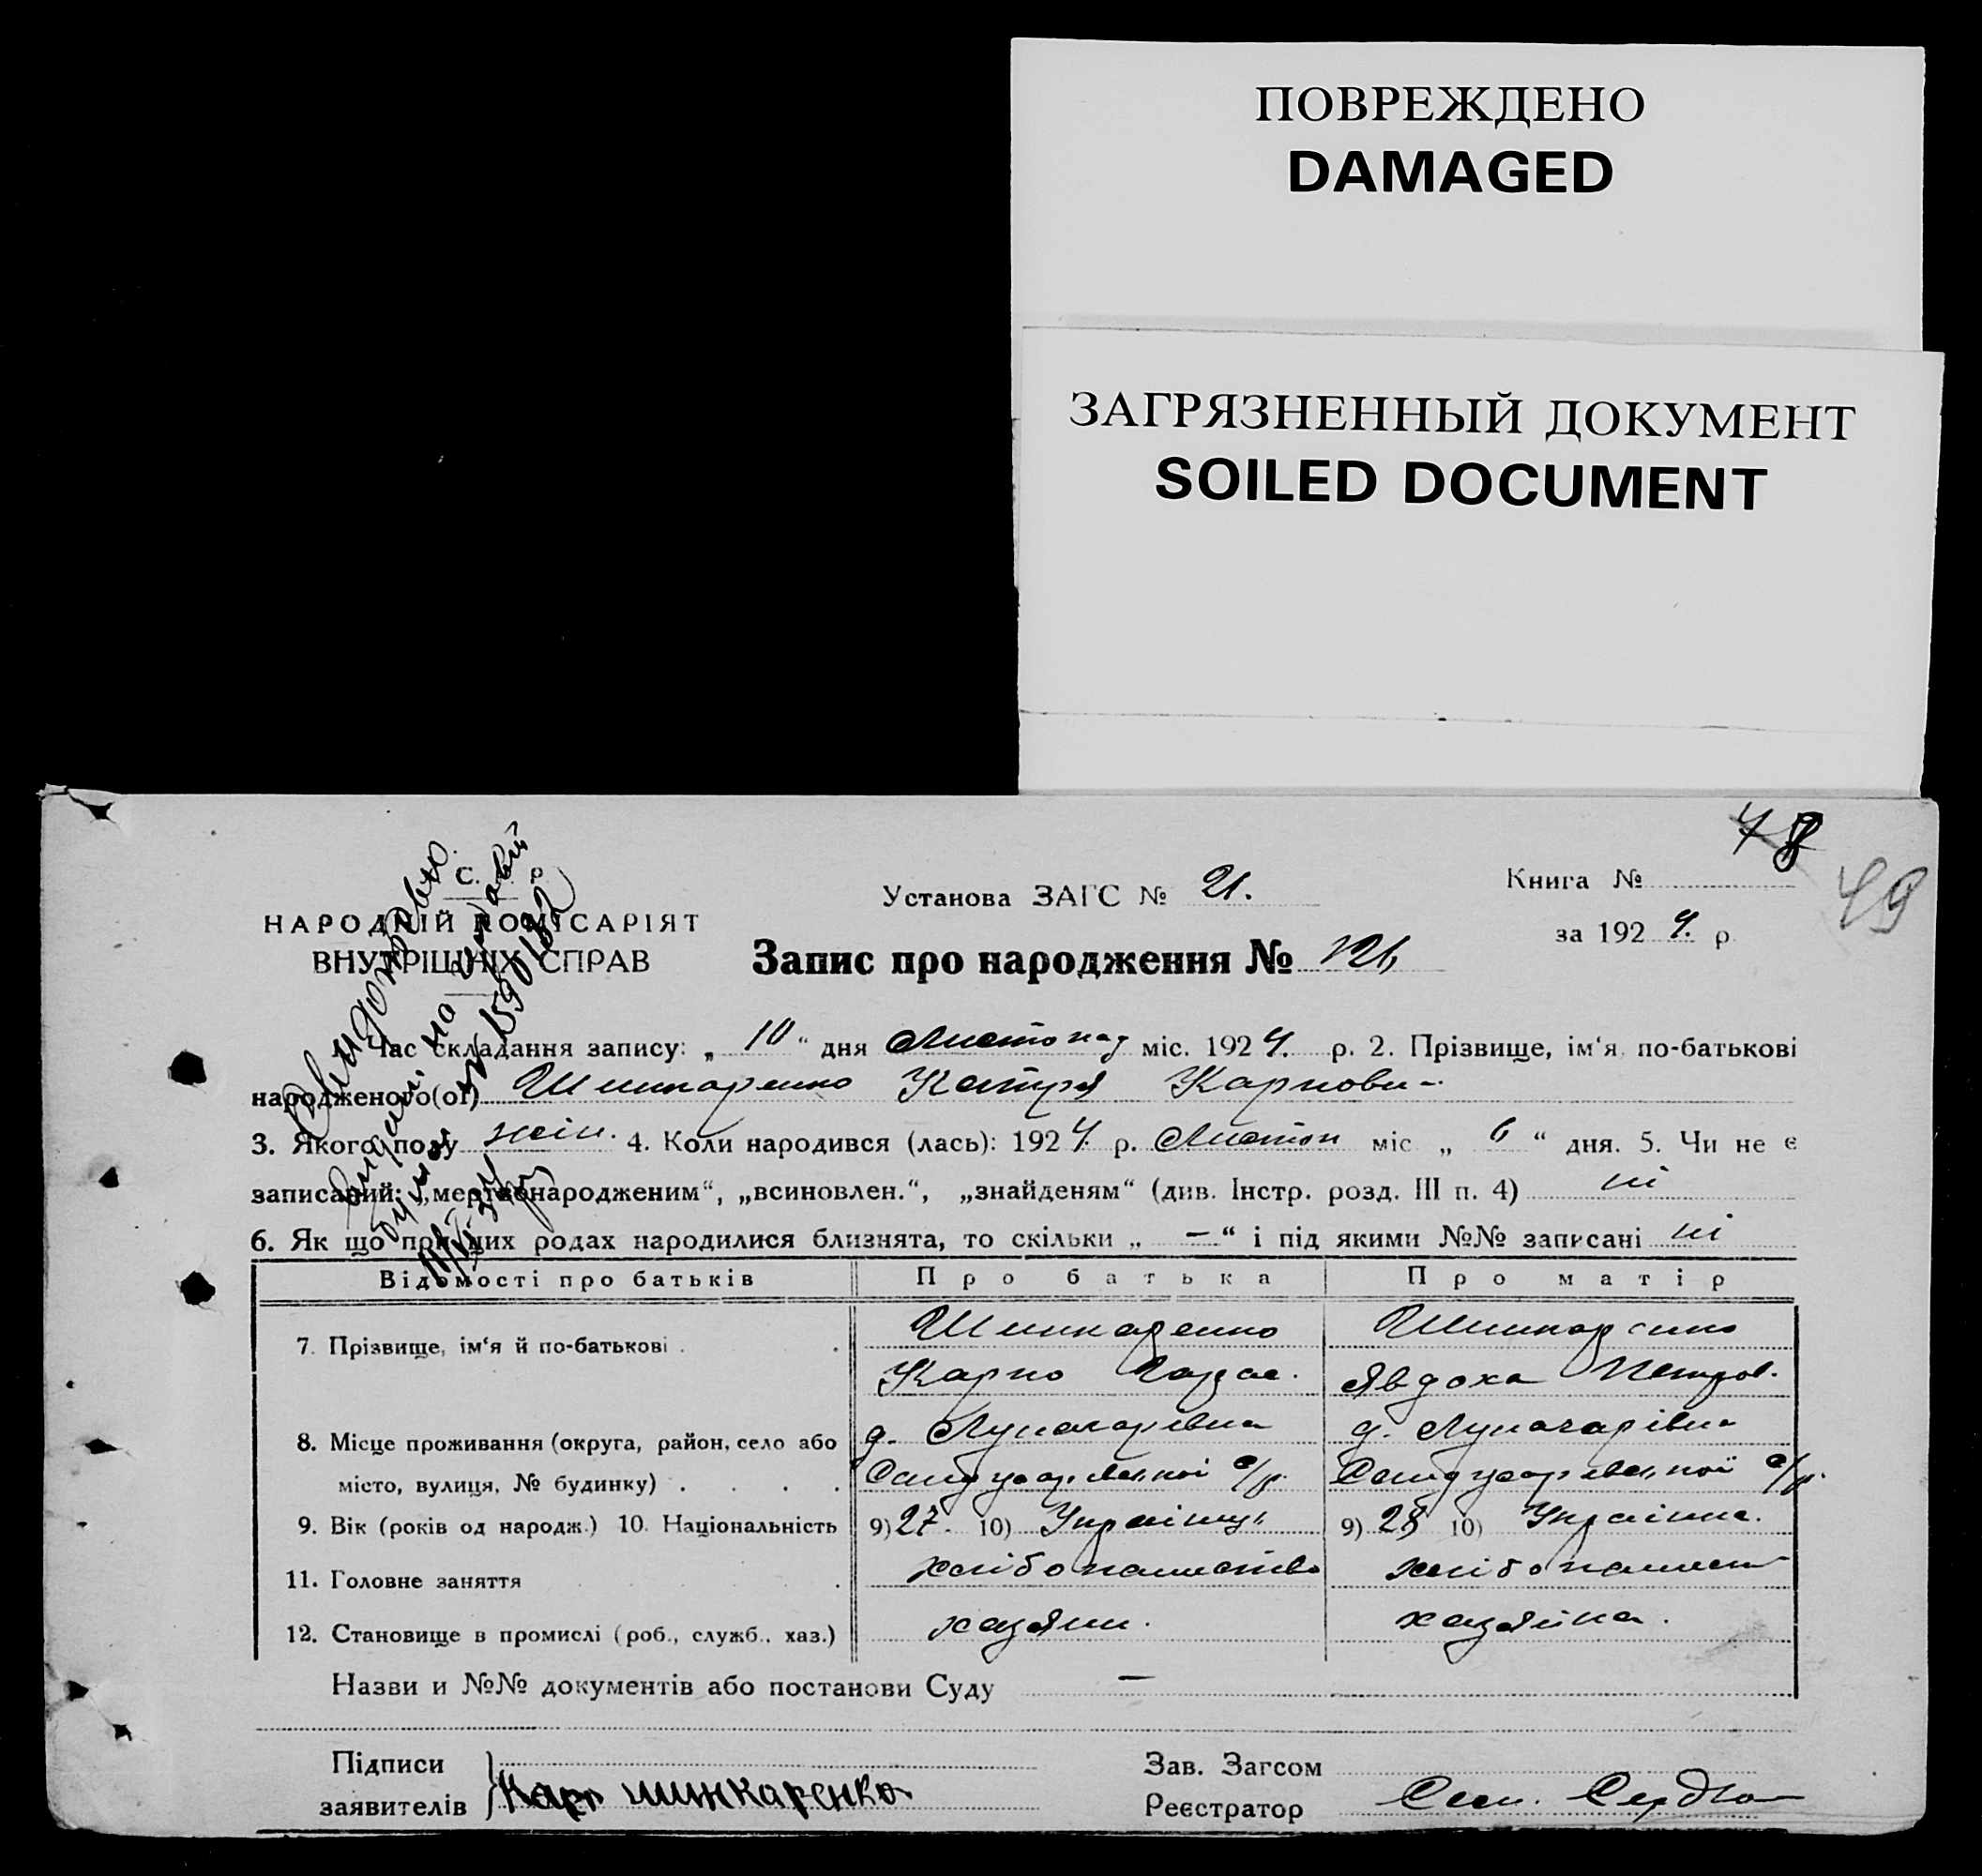 ПОВРЕЖДЕНО
DAMAGED
ЗАГРЯЗНЕННЫЙ ДОКУМЕНТ
SOILED DOCUMENT
49
Установа ЗАГС № 21.
Книга №
за 1924. р
НАРОДНІЙ КОМІСАРІЯТ
ВНУТРІШНІХ СПРАВ
Запис про народження № 121
1. Час складання запису: „ 10 “ дня Листопад міс. 1924. р. 2. Прізвище, ім‘я, по-батькові
народженого(ої) Шинкаренко Катря Карповн
3. Якого полу жін. 4. Коли народився (лась): 1924. р. Листоп міс „ 6 “ дня. 5. Чи не є
записаний: „мертвонародженим“, „всиновлен.“, „знайденям“ (див. Інстр. розд. III п. 4) ні
6. Як що при цих родах народилися близнята, то скільки „ — “ і під якими №№ записані ні
Відомості про батьків Про батька Про матір
7. Прізвище, ім‘я й по-батькові . . Шинкаренко Шинкаренко
Карпо Явдоха Петров.
8. Місце проживання (округа, район, село або д. д.
місто, вулиця, № будинку) . . . . с/р. с/р.
9. Вік (років од народж.) 10. Національність 9) 27. 10) Українць 9) 28 10) Українка.
11. Головне заняття . хлібопашество хлібопашест
12. Становище в промислі (роб., служб., хаз.) хазяин. хазяйка.
Назви и №№ документів або постанови Суду —
Підписи
заявителів Карп шинкаренко
Зав. Загсом
Реєстратор